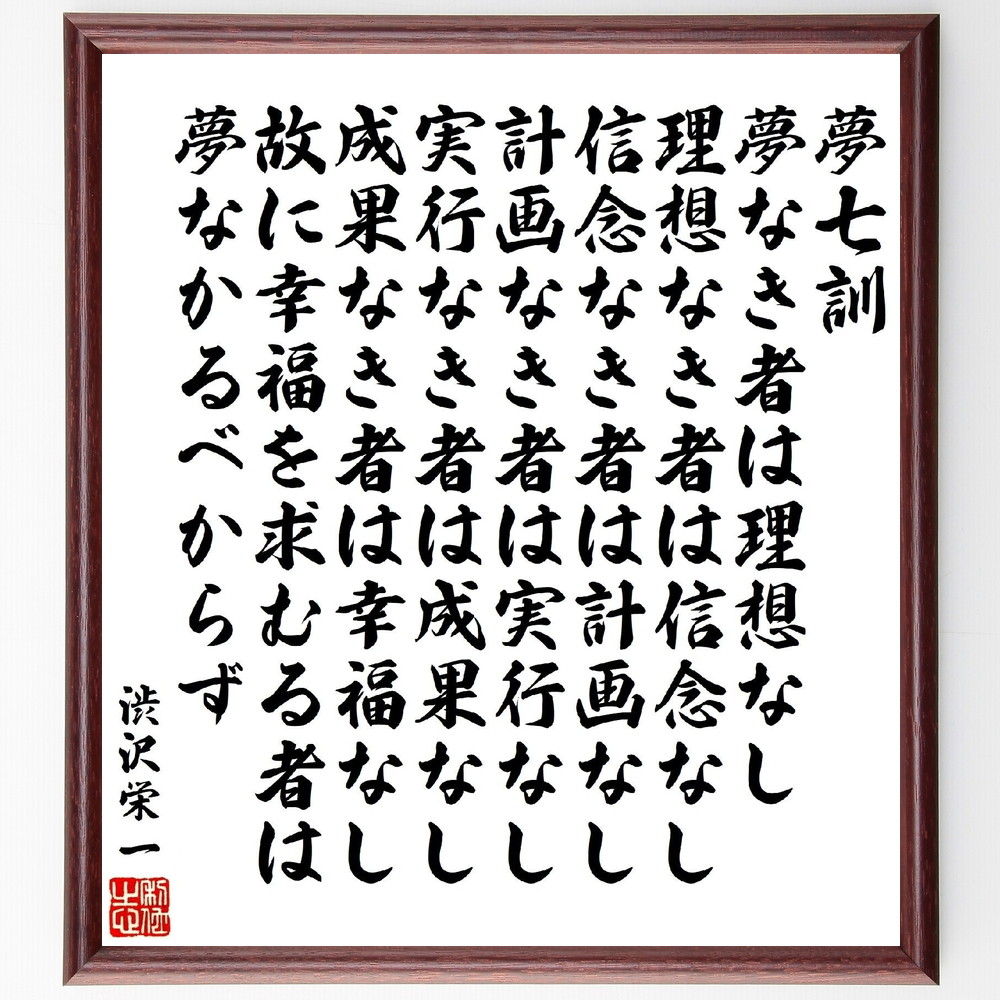 夢七訓
夢なき者は理想なし
理想なき者は信念なし
信念なき者は計画なし
計画なき者は実行なし
実行なき者は成果なし
成果なき者は幸福なし
故に幸福を求むる者は
夢なかるべからず
渋沢栄一